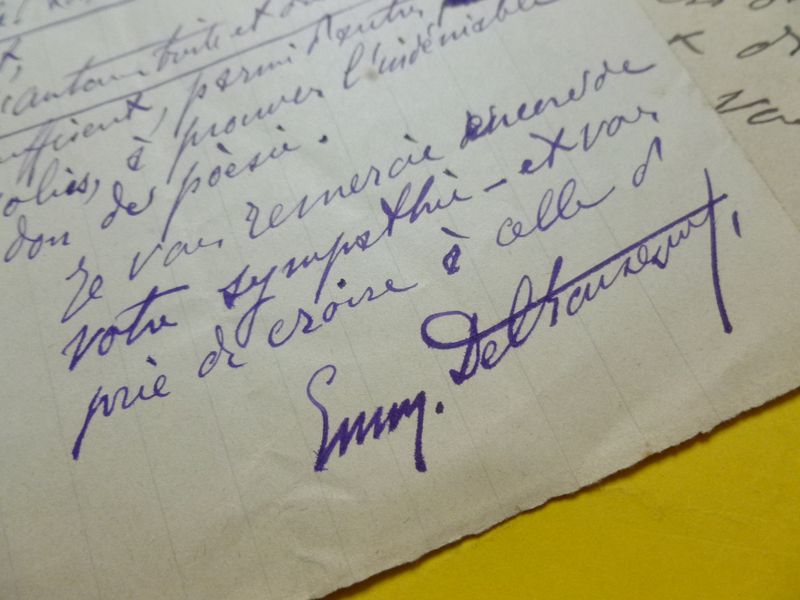 tante et d
suffisent, parmi d'autres
jolies, à prouver l'indéniable
don de poèsie.
Je vous remercie encore de
votre sympathie – et vous
prie de croire à celle d'
Emm. Delbousquet,
x d
vou